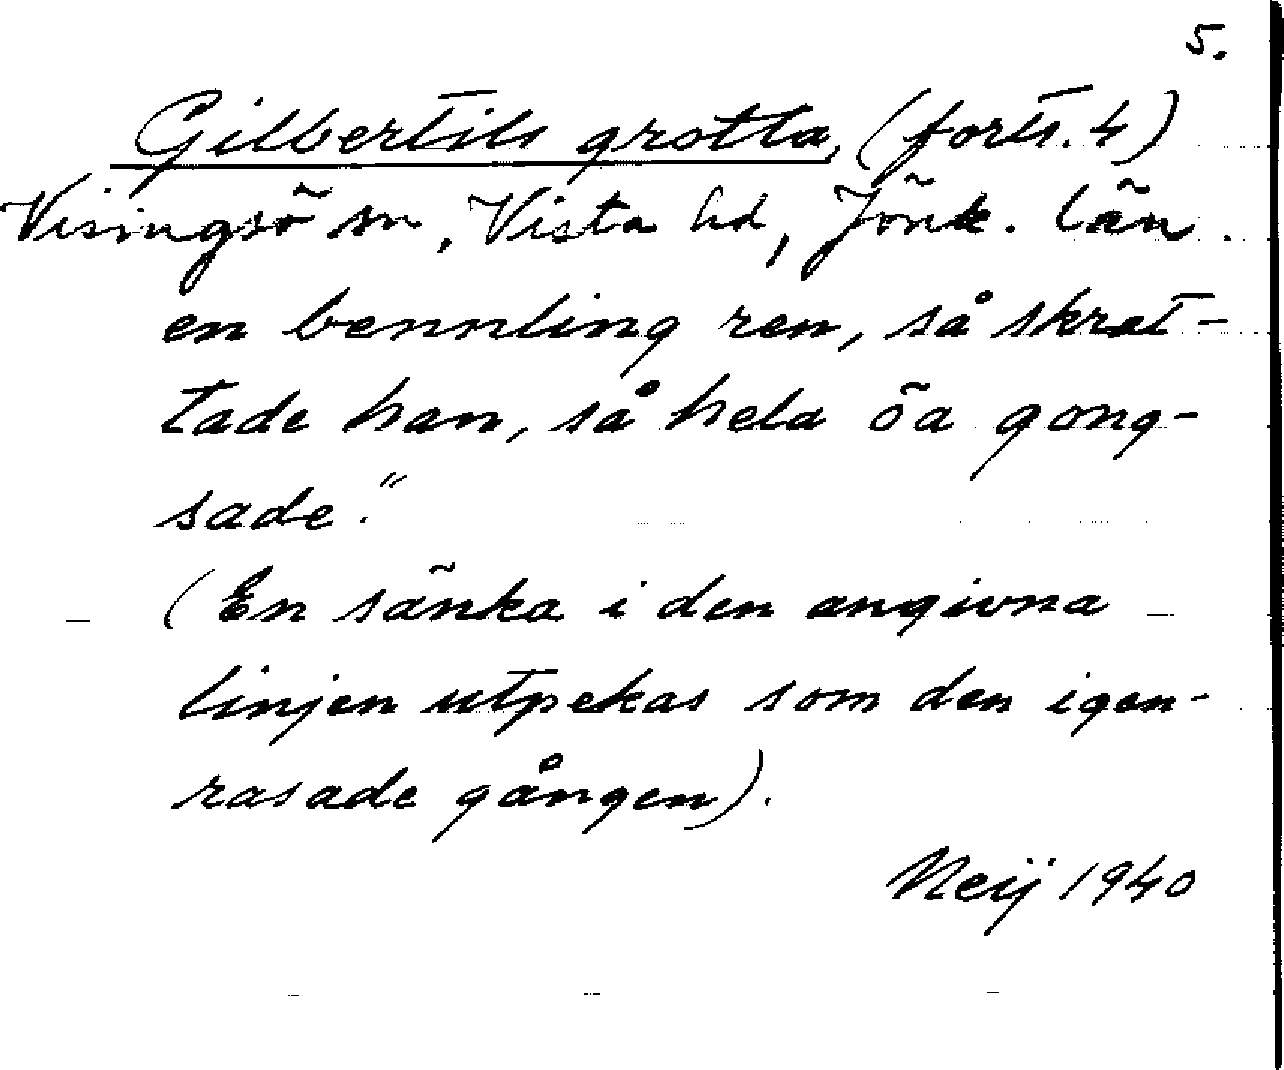 5.
Gilbertils grotta, (forts. 4)
Visingsö sn, Vista hd, Jönk. län.
en bennling ren, så skrat-
tade han, så hela öa gong-
sade."
(En sänka i den angivna
linjen utpekas som den igen-
rasade gången).
Neij 1940